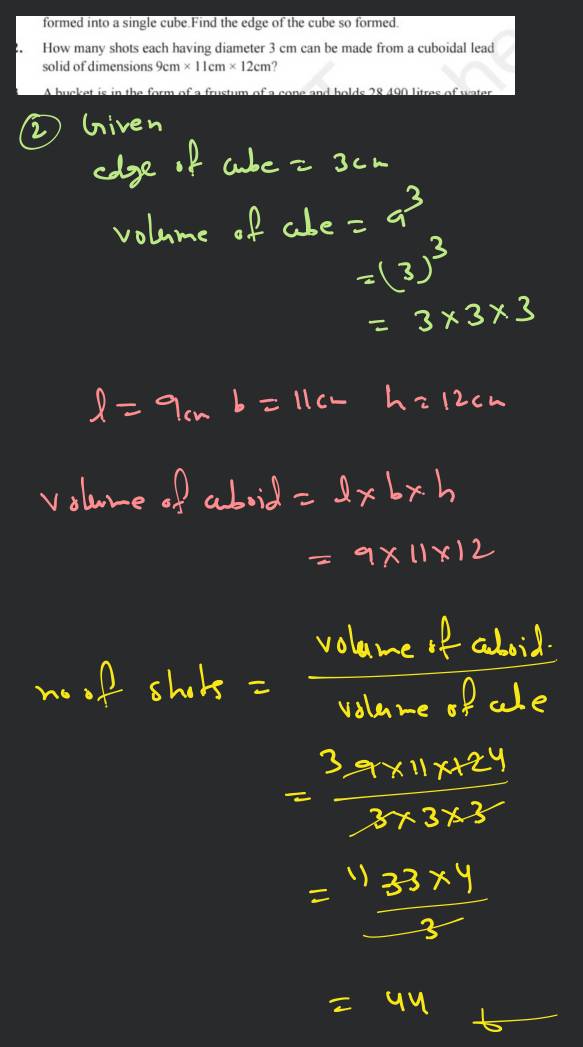 formed into a single cube.Find the edge of the cube so formed.
2. How many shots each having diameter 3 cm can be made from a cuboidal lead
solid of dimensions 9cm × 11cm × 12cm?
A bucket is in the form of a frustum of a cone and holds 28.490 litres of water
(2) Given
edge of cube = 3cm
volume of cube = a³
= (3)³
= 3×3×3
l = 9cm b = 11cm h = 12cm
volume of cuboid = l×b×h
= 9×11×12
volume of cuboid.
no of shots =
volume of cube
3 9×11×12 4
=
3×3×3
= 11 33×4
3
= 44